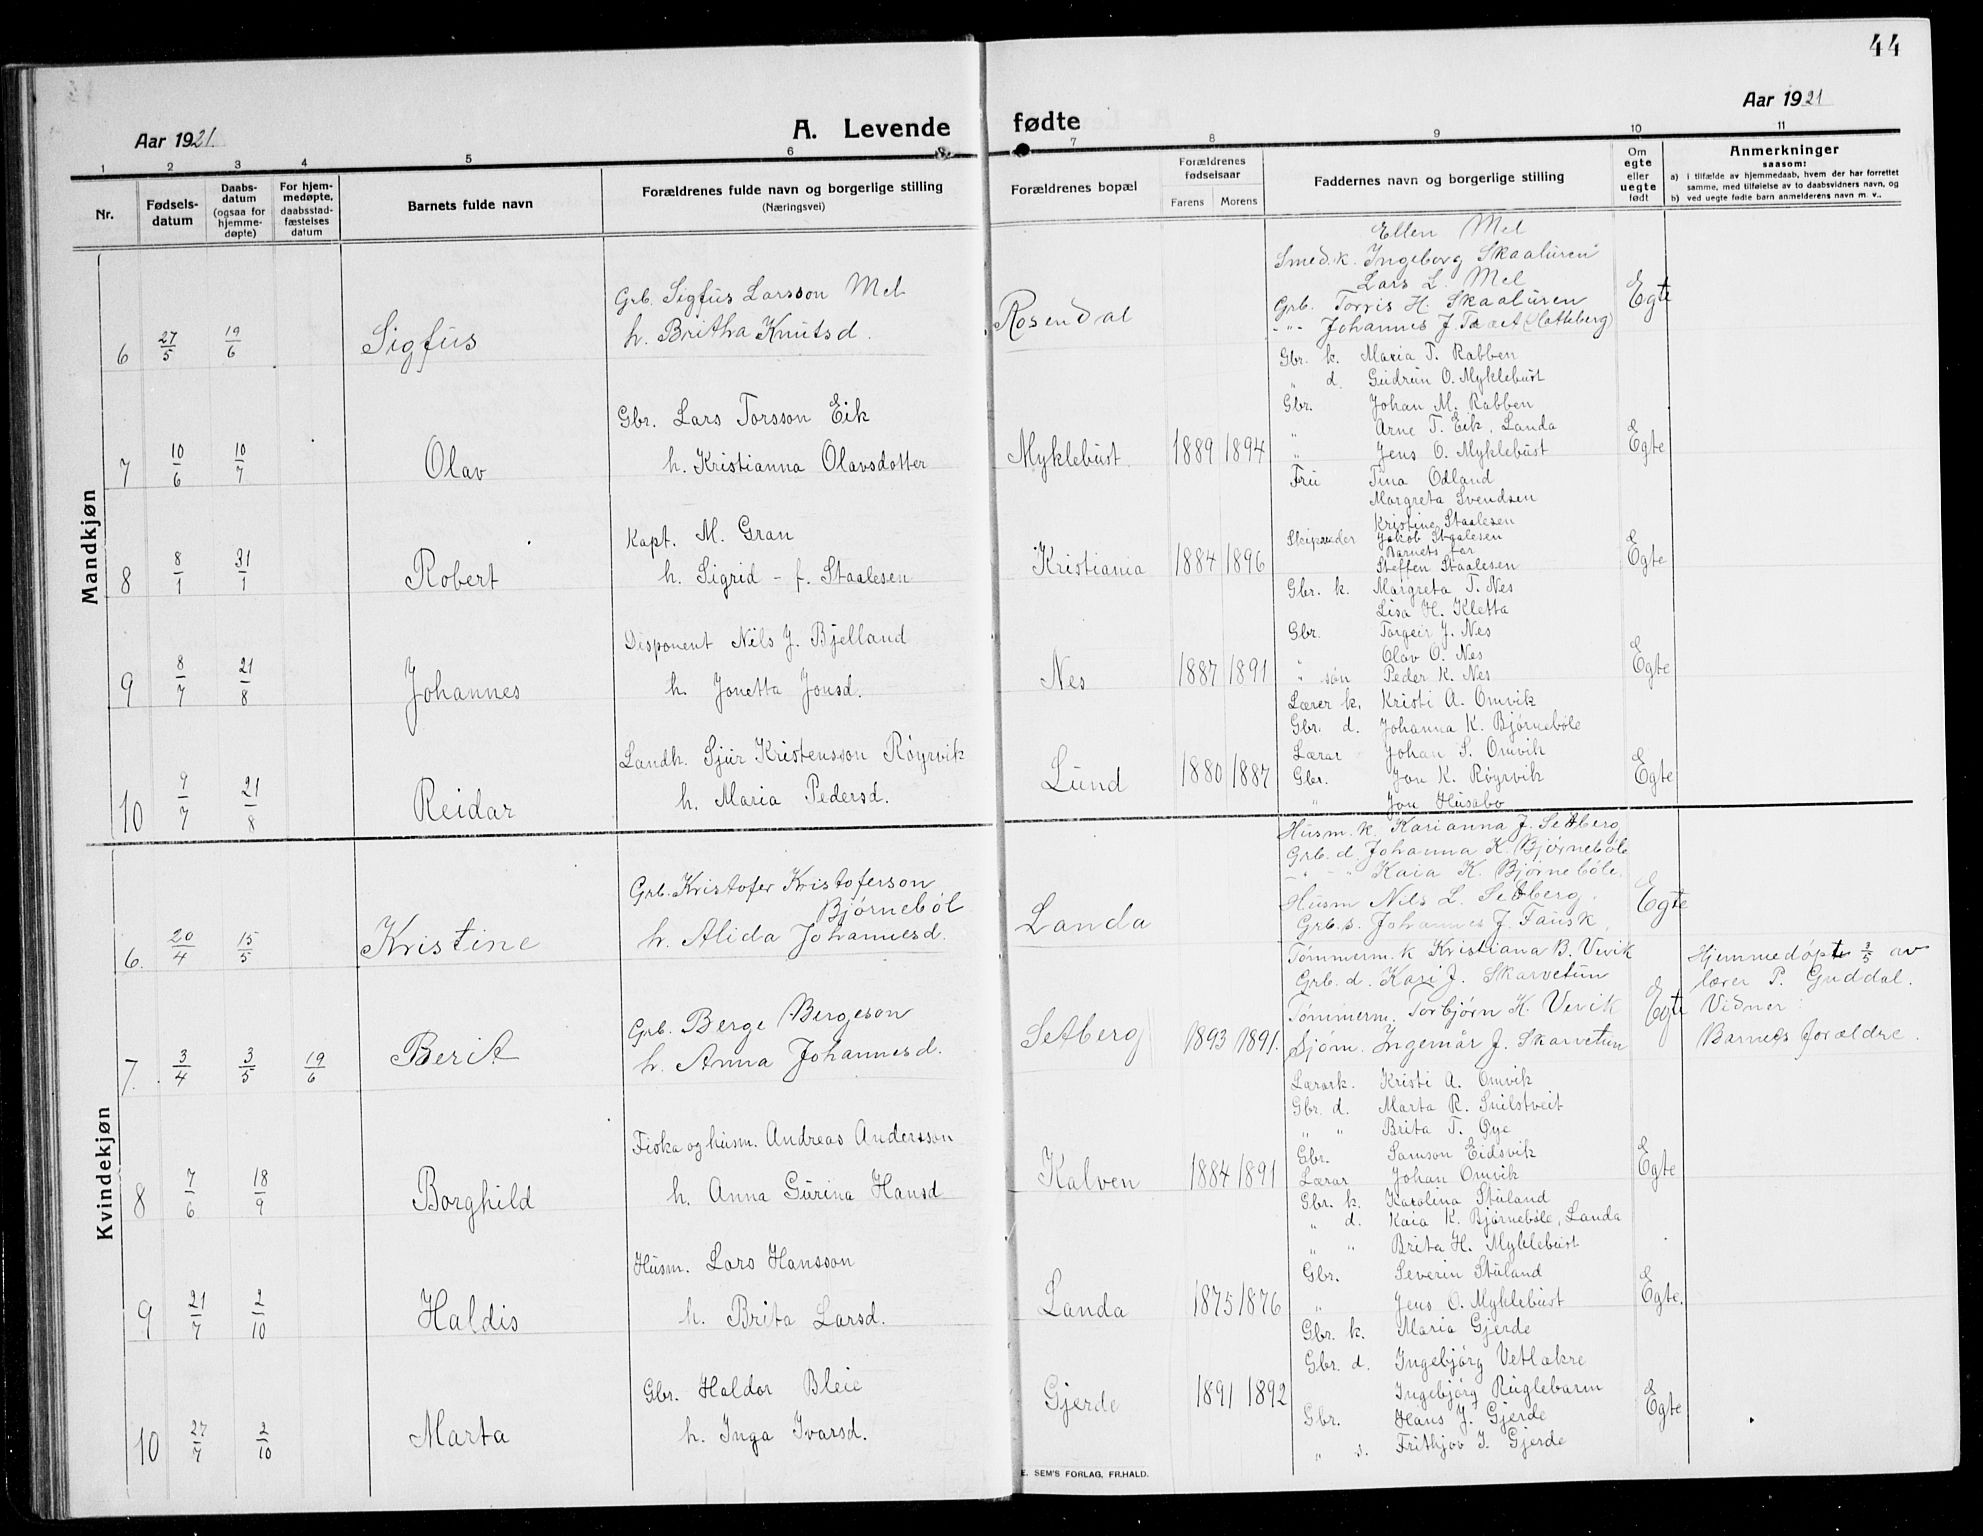 44
Aar 1921.
A. Levende fødte
Aar 1921
1 2 3 4 5 6 7 8 9 10 11
Nr.
Fødsels-
datum
Daabs-
datum
(ogsaa for
hjemme-
døpte)
For hjem-
medøpte,
daabsstad-
fæstelses
datum
Barnets fulde navn
Forældrenes fulde navn og borgerlige stilling
(Næringsvei)
Forældrenes bopæl
Forældrenes
fødselsaar
Farens Morens
Faddernes navn og borgerlige stilling
Om
egte
eller
uegte
født
Anmerkninger
saasom:
a) i tilfælde av hjemmedaab, hvem der har forrettet
samme, med tilføielse av to daabsvidners navn, og
b) ved uegte fødte barn anmelderens navn m. v.,
Mandkjøn
6 27/5 19/6 Sigfus
Grb. Sigfus Larsson Mel
h. Britha Knutsd.
Rosendal
Ellen Mel
Smed.k. Ingeborg Skaaluren
Lars L. Mel
Grb. Torris H. Skaaluren
-"- Johannes J. Tveet (Hatteberg)
Egte
7 10/6 10/7 Olav
Gbr. Lars Torsson Eik
h. Kristianna Olavsdotter
Myklebust. 1889 1894
Gbr. k. Maria T. Rabben
" d. Gudrun O. Myklebust
Gbr. Johan M. Rabben
" Arne T. Eik, Landa
" Jens O. Myklebust
Egte
8 8/1 31/1 Robert
Kapt. M. Gran
h. Sigrid - f. Staalesen
Kristiania 1884 1896
Fru Tina Odland
Margreta Svendsen
Kristine Staalesen
Skipsreder Jakob Staalesen
Barnets far
Steffen Staalesen
Egte
9 8/7 21/8 Johannes
Disponent Nils J. Bjelland
h. Jonetta Jonsd.
Nes 1887 1891
Gbr. k. Margreta T. Nes
Lisa H. Kletta
Gbr. Torgeir J. Nes
" Olav O. Nes
" søn Peder K. Nes
Egte
10 9/7 21/8 Reidar
Landh. Sjur Kristensson Røyrvik
h. Maria Pedersd.
Lund 1880 1887
Lærer k. Kristi A. Omvik
Gbr. d. Johanna K. Bjørnebøle
Lærar Johan S. Omvik
Gbr. Jon K. Røyrvik
" Jon Husabø
Egte
Kvindekjøn
6. 20/4 15/5 Kristine
Grb. Kristofer Kristoferson
Bjørnebøl
h. Alida Johannesd.
Landa
Husm. k. Karianna J. Setberg
Grb. d. Johanna K. Bjørnebøle
-"- -"- Kaia K. Bjørnebøle.
Husm Nils L. Setberg.
Grb. s. Johannes J. Fausk.
Egte
7. 3/4 3/5 19/6 Berit
Grb. Berge Bergeson
h. Anna Johannesd.
Setberg 1893 1891.
Tømmerm. k Kristiana B. Vevik
Grb. d. Kari J. Skarvetun
Tømmerm. Torbjørn K. Vevik
Sjøm. Ingemar J. Skarvetun
Egte
Hjemmedøpt 3/5 av
lærer P. Guddal.
Vidner:
Barnets forældre.
8 7/6 18/9 Borghild
Fiska og husm. Andreas Andersson
h. Anna Gurina Hansd
Kalven 1884 1891
Lærark. Kristi A. Omvik
Gbr. d. Marta R. Snilstveit
" " Brita T. Øye
Gbr. Samson Eidsvik
Lærar Johan Omvik
Egte
9 21/7 2/10 Haldis
Husm. Lars Hansson
h. Brita Larsd.
Landa 1875 1876
Gbr. k. Karolina Støland
" d. Kaia K. Bjørnebøle, Landa
" " Brita H. Myklebust
Gbr. Severin Støland
" Jens O. Myklebust
Egte.
10 27/7 2/10 Marta
Gbr. Haldor Bleie
h. Inga Ivarsd.
Gjerde 1891 1892
Gbr. k. Maria Gjerde
Gbr. d. Ingebjørg Vetlakre
Ingebjørg Ruglebarm
Gbr. Hans J. Gjerde
" s. Frithjov I. Gjerde
Egte
E. SEM'S FORLAG, FR.HALD.